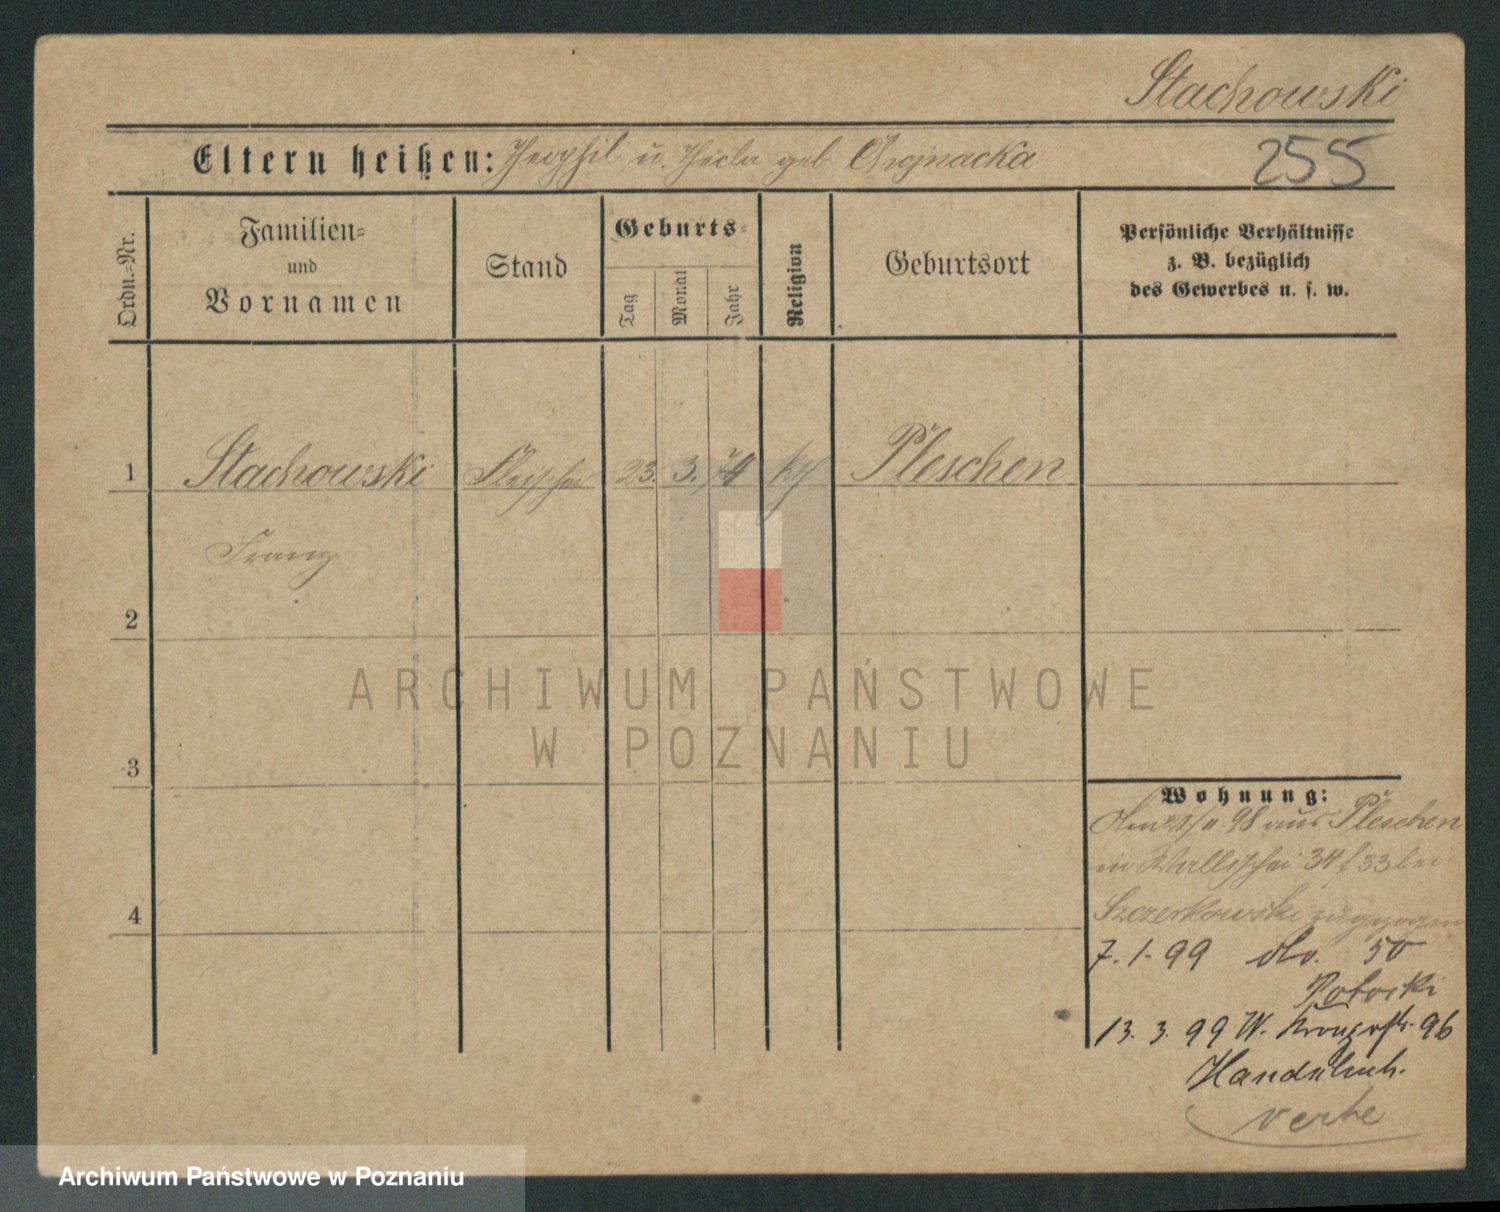 Stachowski
Eltern heißen: Theophil u. Thecla geb. Chojnacka
255
Ordn.-Nr.
Familien-
und
Vornamen
Stand
Geburts-
Tag
Monat
Jahr
Religion
Geburtsort
Persönliche Verhältnisse
z. B. bezüglich
des Gewerbes u. s. w.
1 Stachowski Fleischer 23. 3. 74 kth Pleschen
Franz
2
3
4
Wohnung:
98 aus Pleschen
in Wallischei 34/33 bei
Szczerkowski zugezogen
7. 1. 99 do. 50
Potocki
13. 3. 99 W. 96
verte
ARCHIWUM PAŃSTWOWE
W POZNANIU
Archiwum Państwowe w Poznaniu